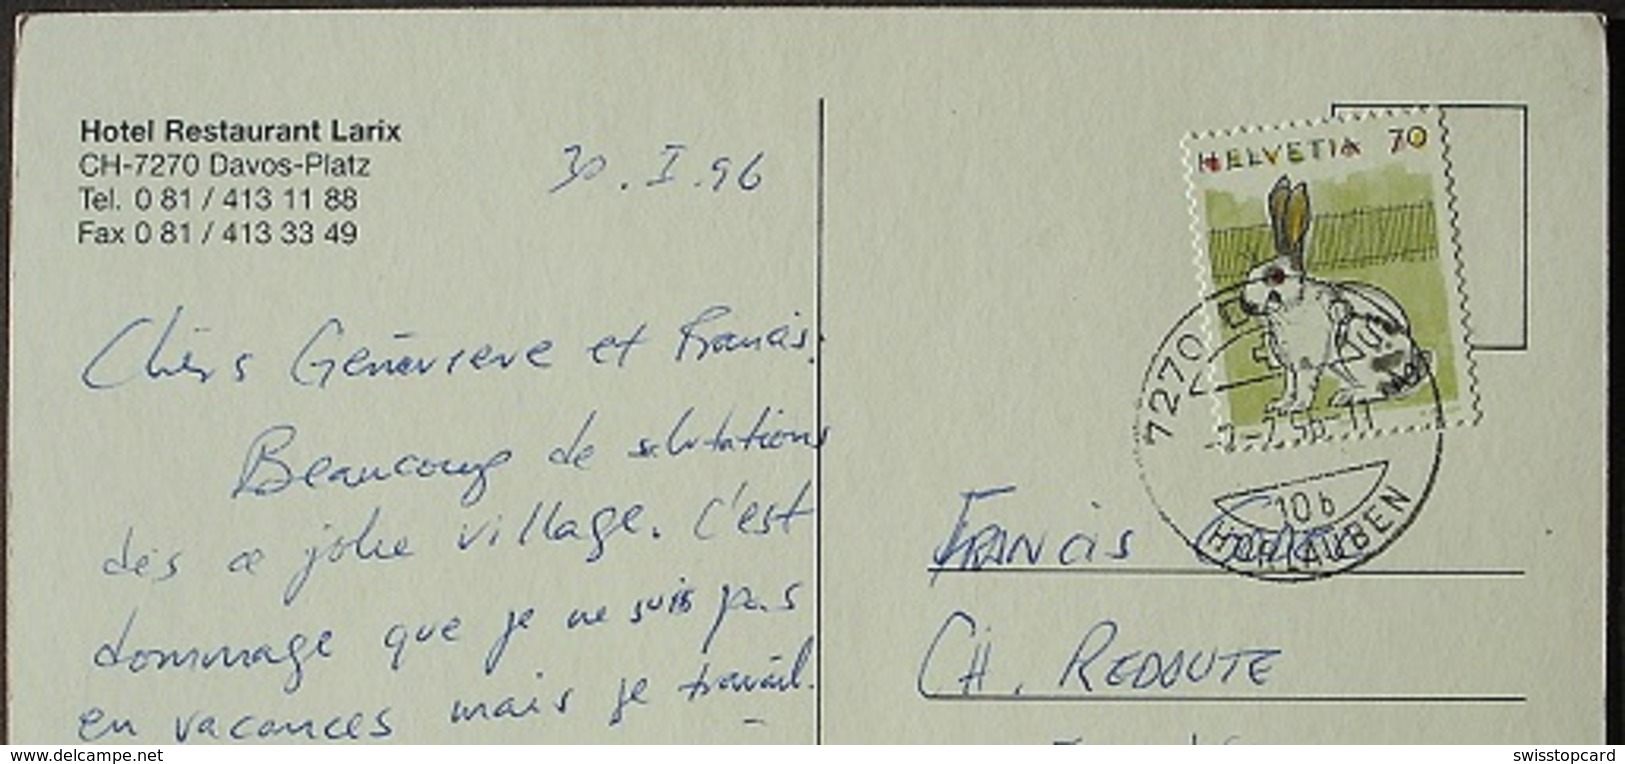 Hotel Restaurant Larix
CH-7270 Davos-Platz
Tel. 0 81 / 413 11 88
Fax 0 81 / 413 33 49
30.I.96
Chèrs Geneviève et Francis.
Beaucoup de salutations
des ce jolie village. C'est
dommage que je ne suis pas
en vacances mais je travail.
HELVETIA 70
7270
10b
HORLAUBEN
FRANCIS
CH. REDOUTE
www.delcampe.net
swisstopcard